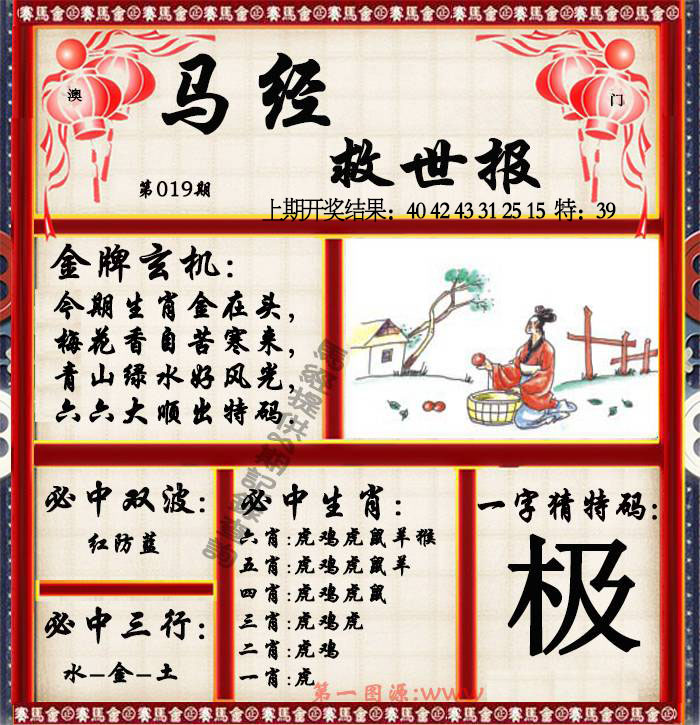 澳
门
马经
救世报
第019期
上期开奖结果：40 42 43 31 25 15 特：39
金牌玄机：
今期生肖金在头，
梅花香自苦寒来，
青山绿水好风光，
六六大顺出特码．
必中双波：
红防蓝
必中三行：
水-金-土
必中生肖：
六肖:虎鸡虎鼠羊猴
五肖:虎鸡虎鼠羊
四肖:虎鸡虎鼠
三肖:虎鸡虎
二肖:虎鸡
一肖:虎
一字猜特码：
极
第一图源:www